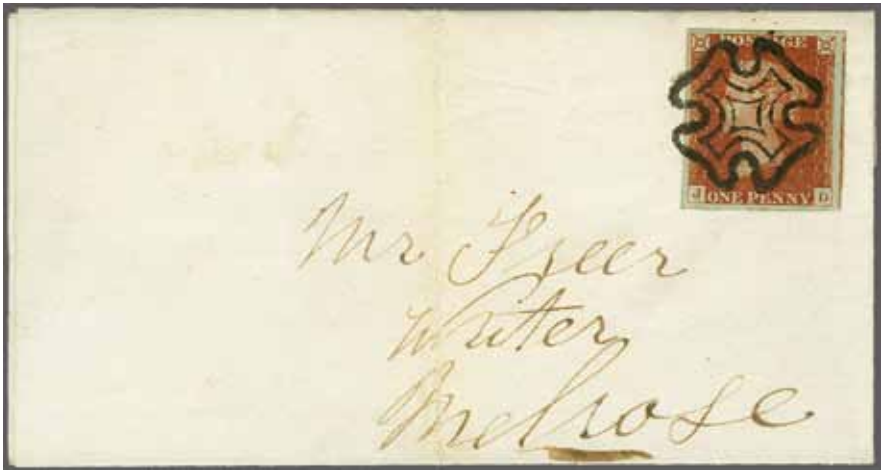 POSTAGE
J ONE PENNY D
Mr Freer
Writer
Melrose